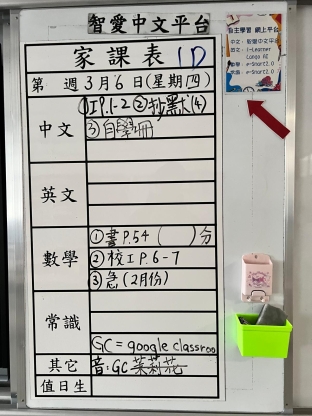 智愛中文平台
家課表 1D
第 週 3月6日(星期四)
中文
①IP.1-2 ②抄黑犬(4)
③自學冊
英文
數學
①書P.54 ( )分
②校IP.6-7
③急(2月份)
常識
GC = google classroo
其它
音:GC 茉莉花
值日生
自主學習 網上平台
中文: 智愛中文平台
英文: i-Learner
數學: e-Smart2.0
常識: e-Smart2.0